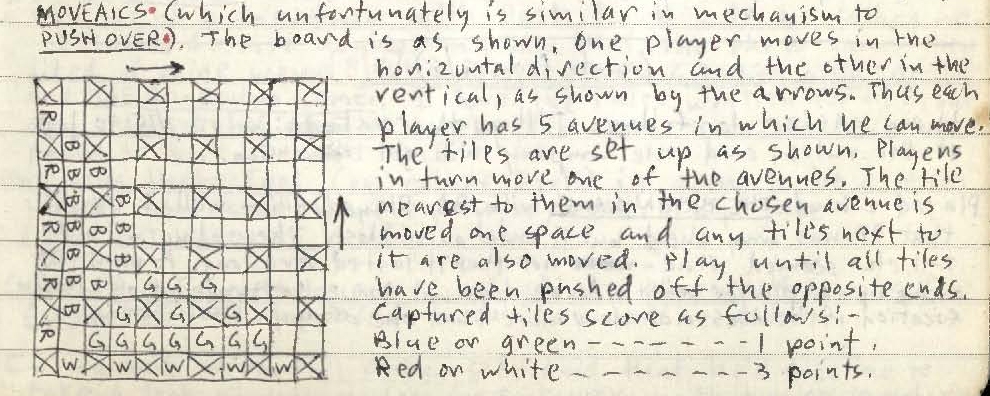 MOVEAICS. (which unfortunately is similar in mechanism to
PUSH OVER.). The board is as shown. One player moves in the
horizontal direction and the other in the
vertical, as shown by the arrows. Thus each
player has 5 avenues in which he can move.
The tiles are set up as shown. Players
in turn move one of the avenues. The tile
nearest to them in the chosen avenue is
moved one space and any tiles next to
it are also moved. Play until all tiles
have been pushed off the opposite ends.
Captured tiles score as follows:-
Blue or green ------- 1 point.
Red or white ------- 3 points.
R
B
R B B
B B
R B B B
B B
R B B G G G
B G G G
R G G G G G G G
W W W W W